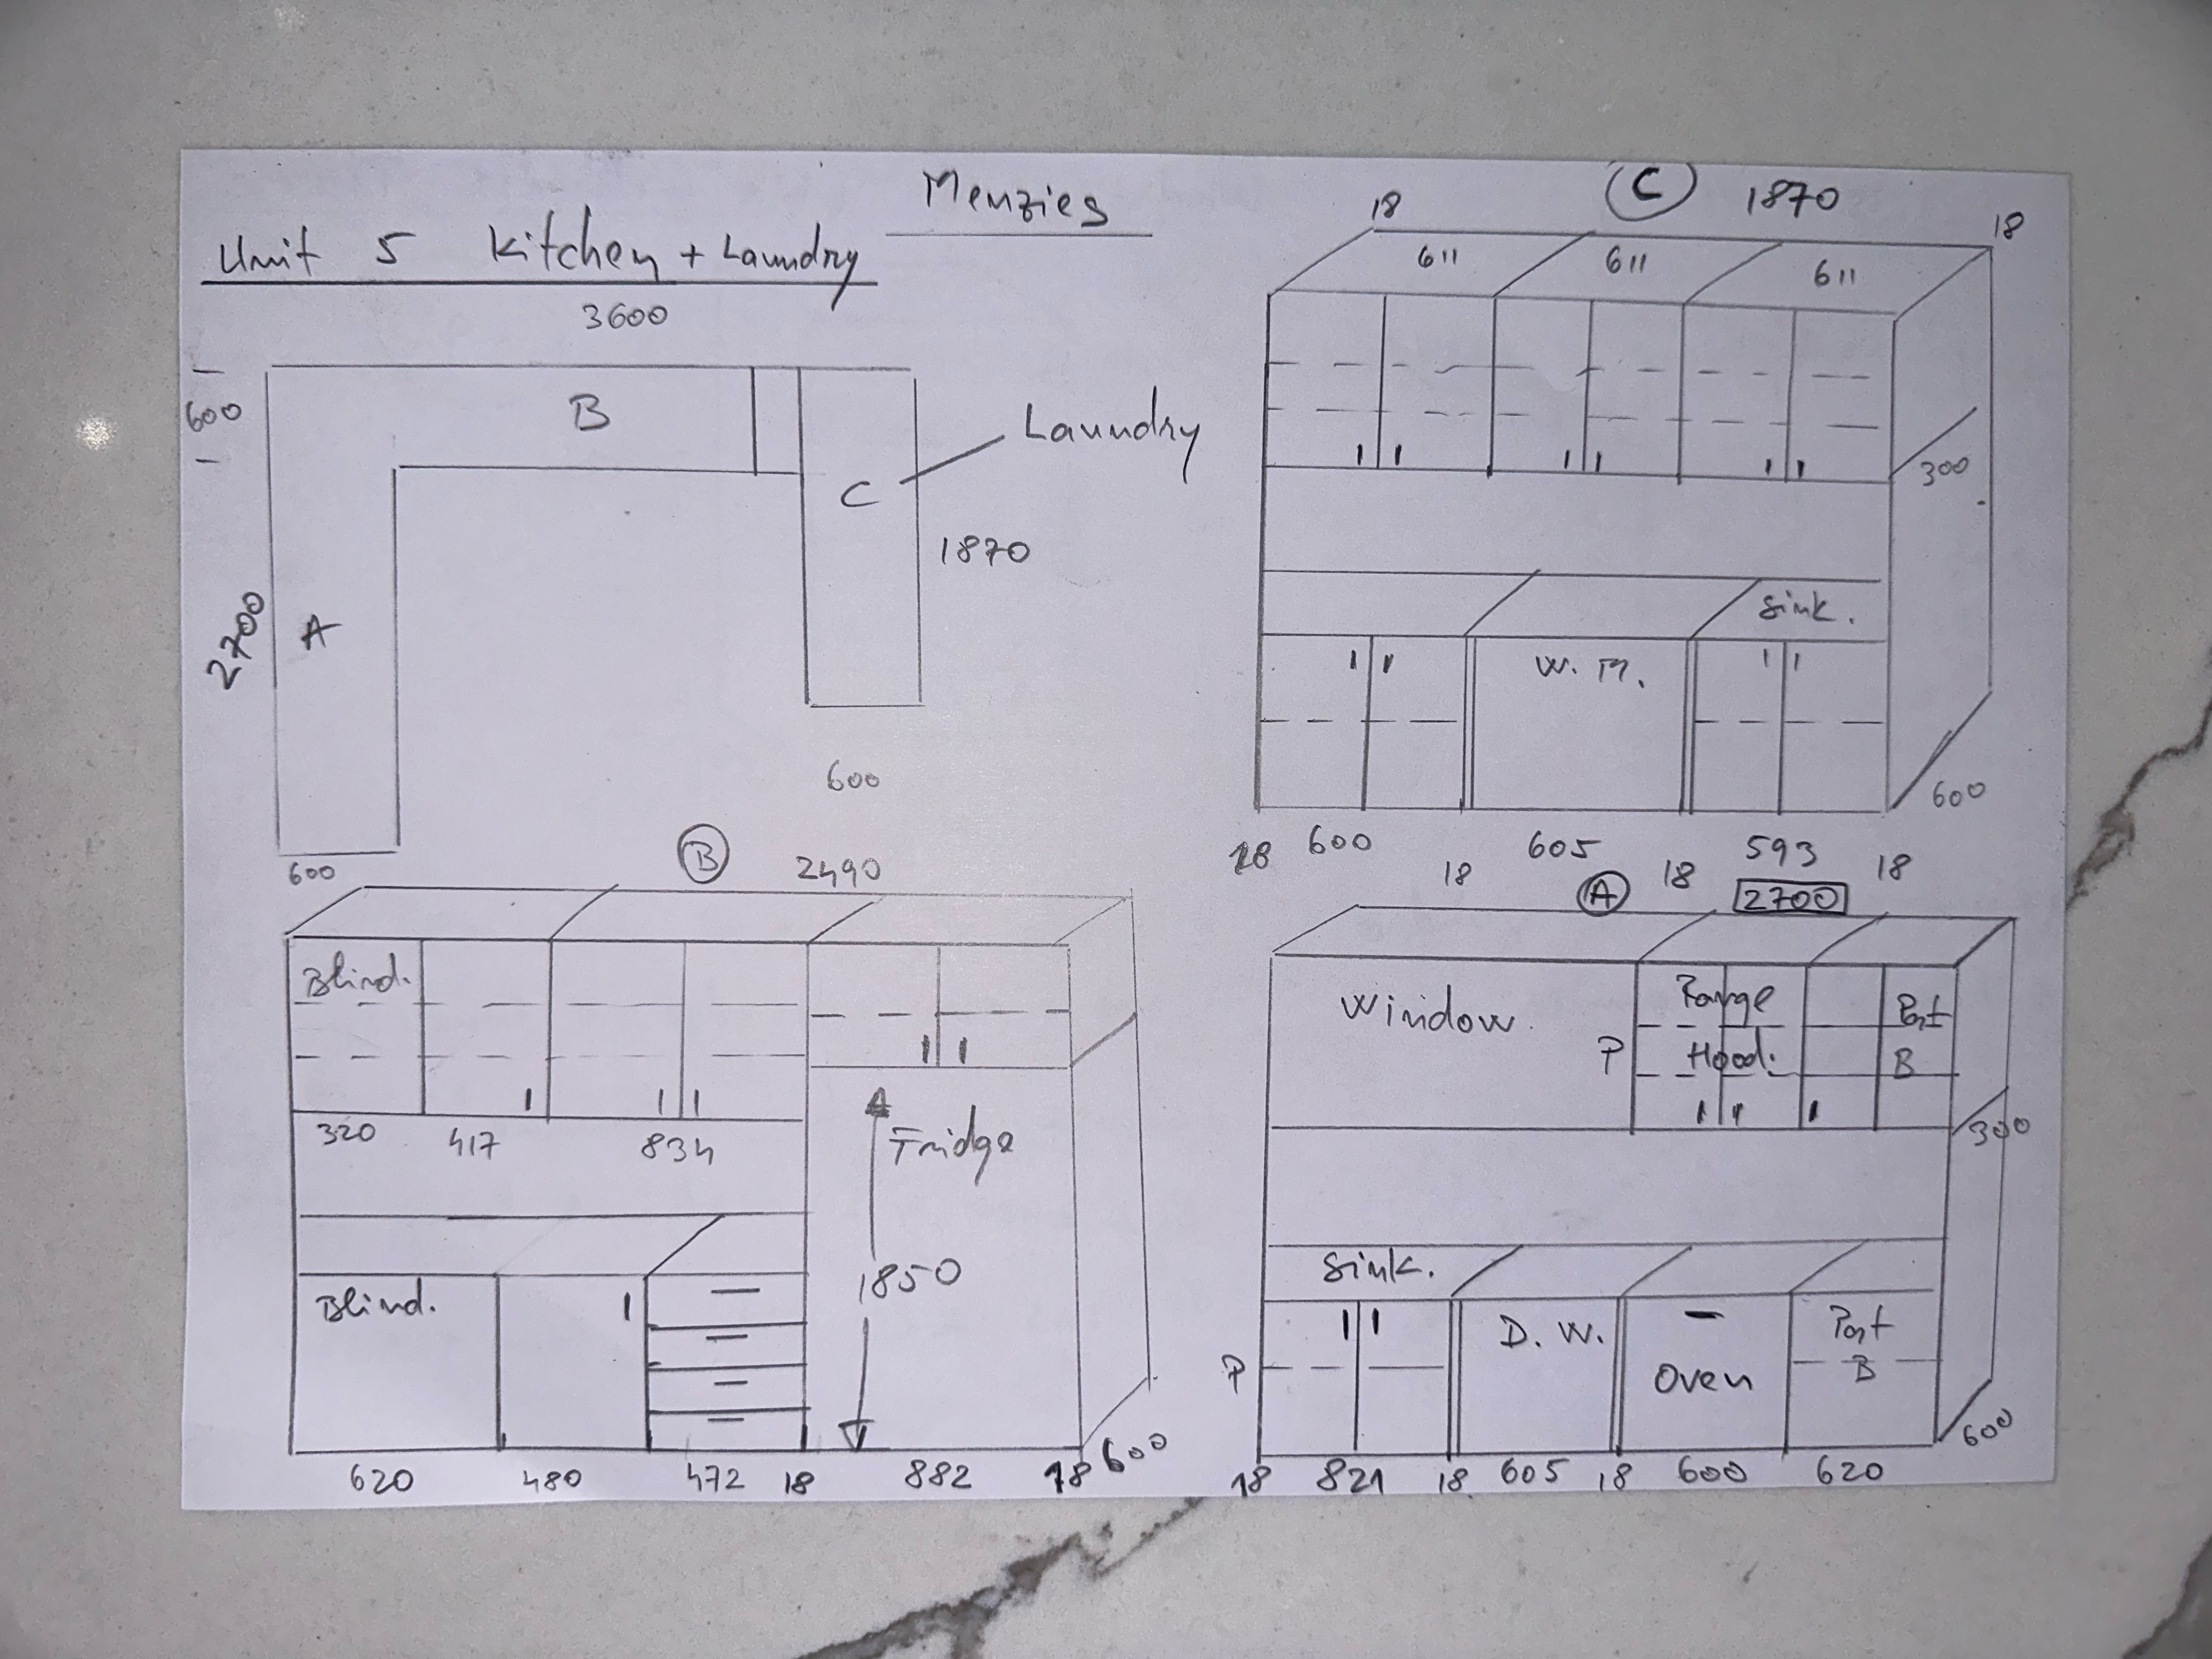 Menzies
Unit 5 Kitchen + Laundry
3600
600
B
Laundry
C
1870
2700
A
600
600
C 1870
18 18
611 611 611
300
Sink.
W. M.
600
18 600 18 605 18 593 18
B 2490
Blind.
320 417 834
Fridge
1850
Blind.
620 480 472 18 882 18 600
A 2700
Window
Range
Hood.
P
Part
B
300
Sink.
D. W.
Oven
Part
B
P
600
18 821 18 605 18 600 620